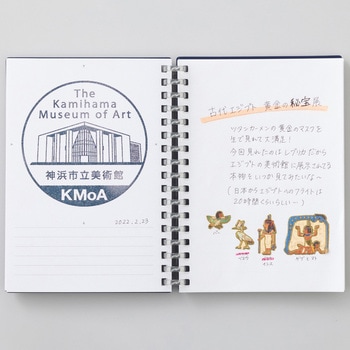 The
Kamihama
Museum of Art
神浜市立美術館
KMoA
2022.2.23
古代エジプト 黄金の秘宝展
ツタンカーメンの黄金のマスクを
生で見れて大満足!
今回見れたのはレプリカだから
エジプトの美術館に展示されてる
本物をいつか見てみたいな〜
(日本からエジプトへのフライトは
20時間くらいらしい…)